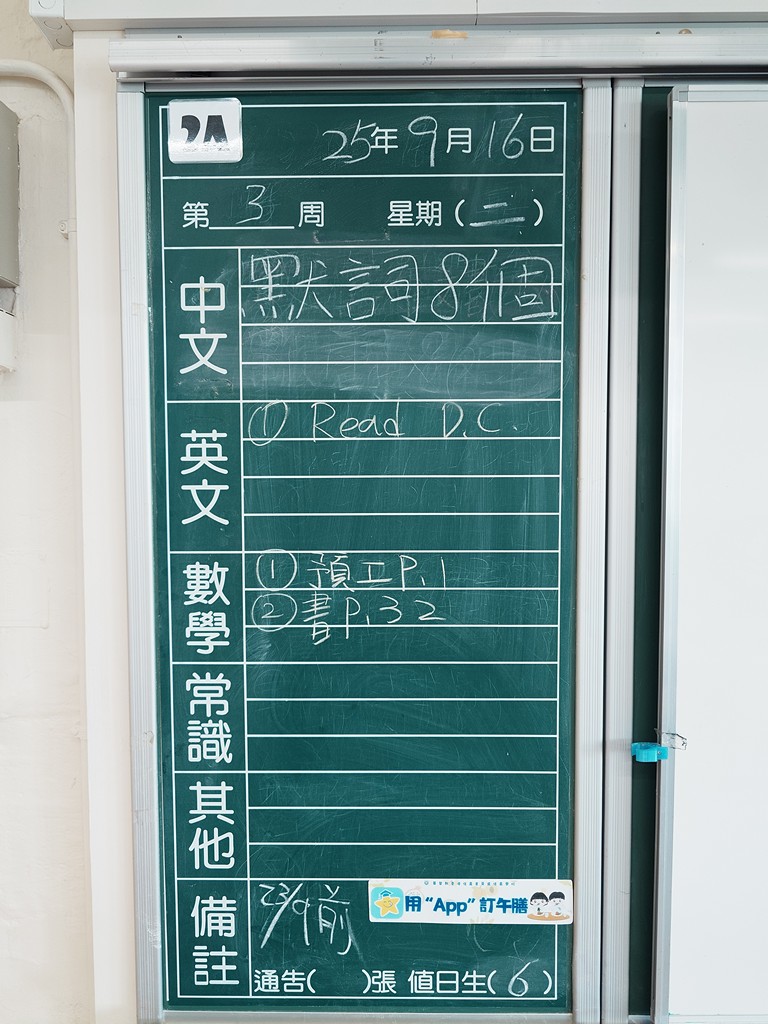 2A
25年9月16日
第3周 星期(二)
中文
默詞8個
英文
① Read D.C.
數學
① 預工P.1
② 書P.32
常識
其他
備註
23/9前
用“App”訂午膳
通告( )張 值日生(6)